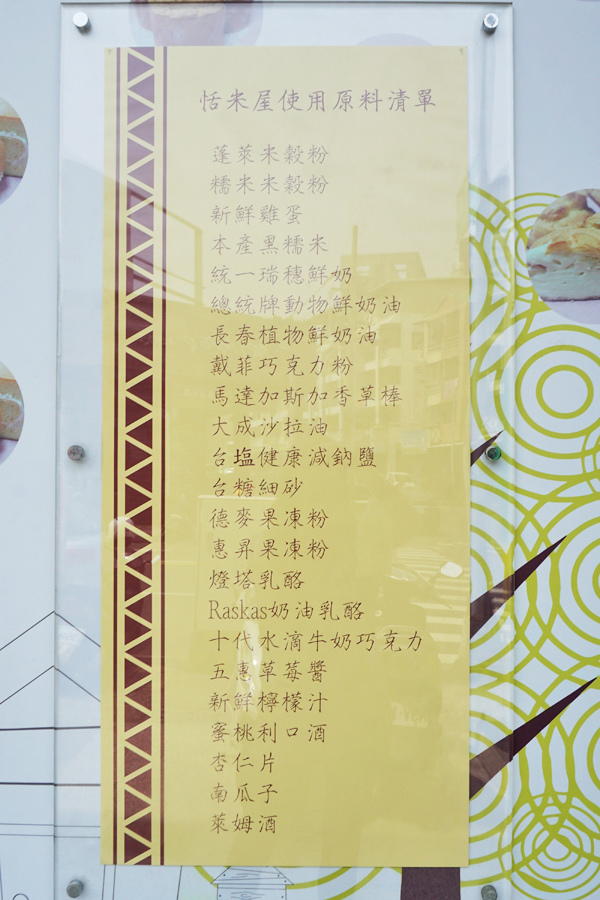 恬米屋使用原料清單
蓬萊米穀粉
糯米米穀粉
新鮮雞蛋
本產黑糯米
統一瑞穗鮮奶
總統牌動物鮮奶油
長春植物鮮奶油
戴菲巧克力粉
馬達加斯加香草棒
大成沙拉油
台塩健康減鈉鹽
台糖細砂
德麥果凍粉
惠昇果凍粉
燈塔乳酪
Raskas奶油乳酪
十代水滴牛奶巧克力
五惠草莓醬
新鮮檸檬汁
蜜桃利口酒
杏仁片
南瓜子
萊姆酒